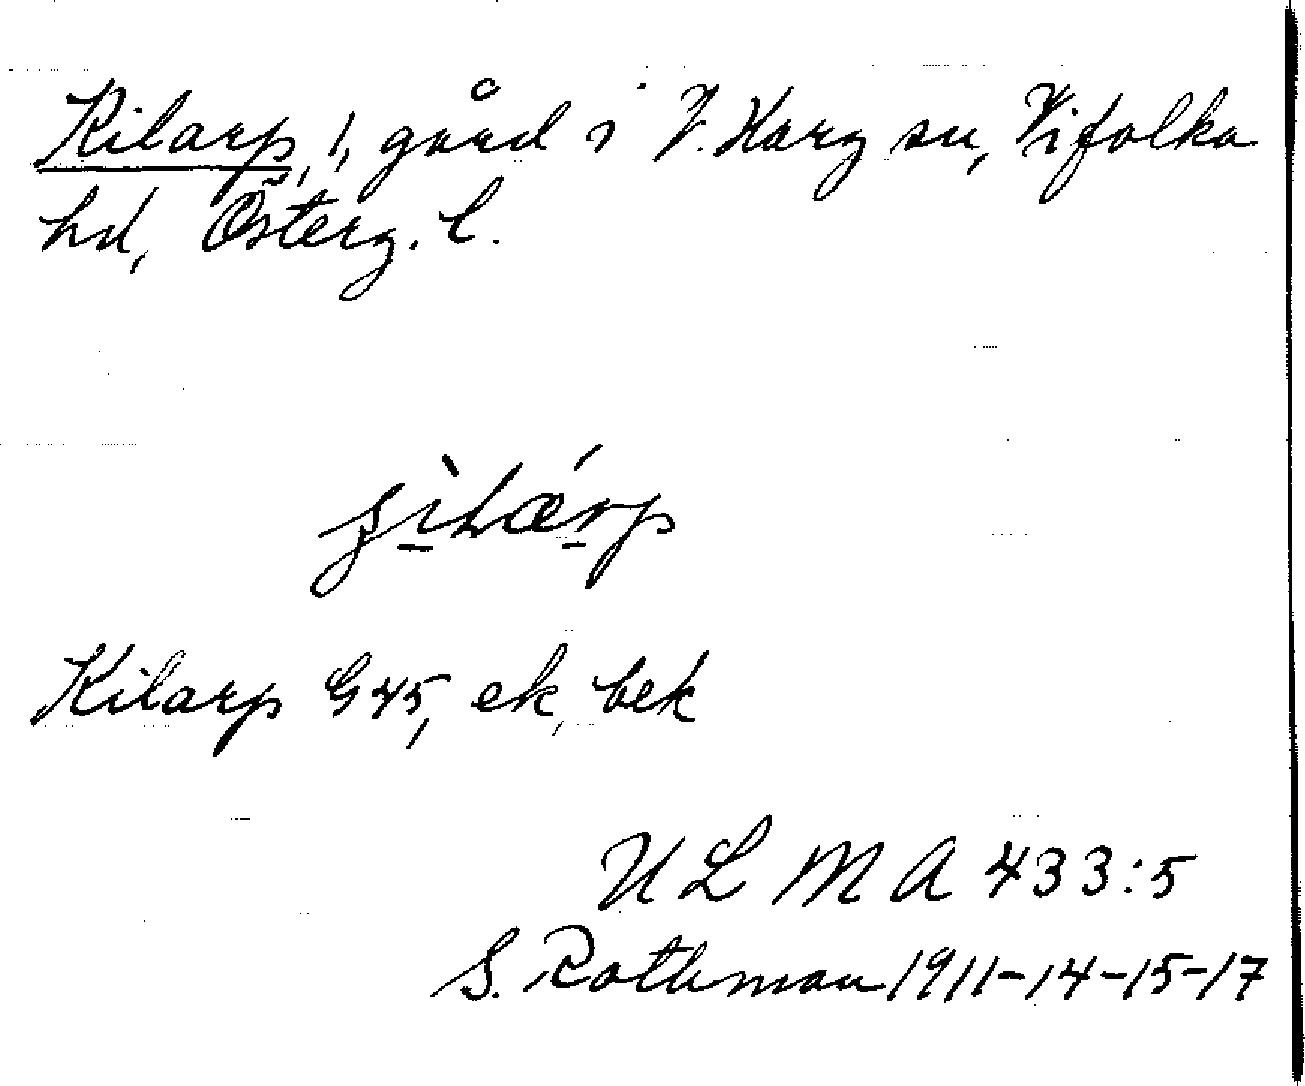 Kilarp, 1, gård i V. Harg sn, Vifolka
hd, Österg. l.
Kilarp G45, ek, bek
ULMA 433:5
S. Rothman 1911-14-15-17